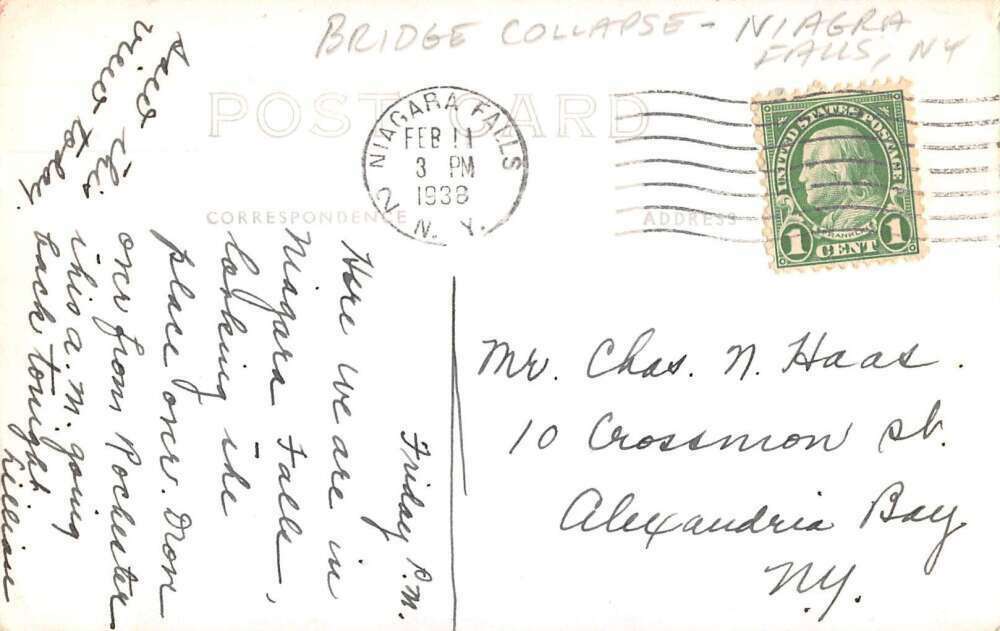 BRIDGE COLLAPSE - NIAGRA
FALLS, NY
POST CARD
NIAGARA FALLS
FEB 11
3 PM
1938
N. Y.
2
UNITED STATES POSTAGE
FRANKLIN
1 CENT 1
CORRESPONDENCE
ADDRESS
Friday P.M.
Here we are in
Niagara Falls,
looking the
place over. Drove
over from Rochester
this a.m. going
back tonight
Lillian
Saw this
view today.
Mr. Chas. N. Haas.
10 Crossmon St.
Alexandria Bay
N.Y.